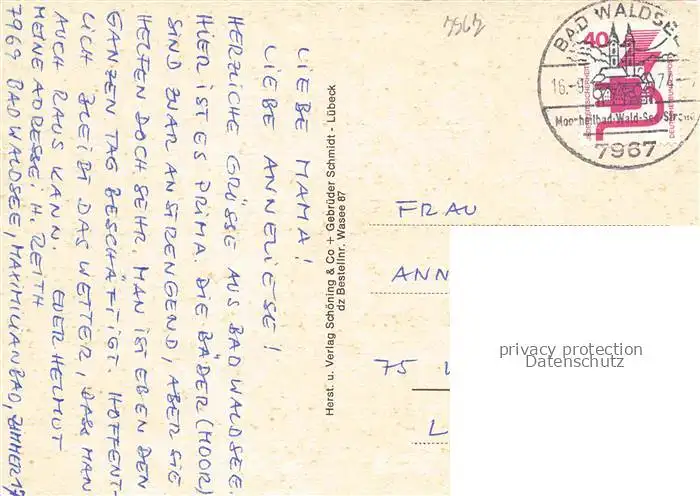 LIEBE MAMA!
LIEBE ANNELIESE!
HERZLICHE GRÜSSE AUS BAD WALDSEE.
HIER IST ES PRIMA. DIE BÄDER (MOOR)
SIND ZWAR ANSTRENGEND, ABER SIE
HELFEN DOCH SEHR. MAN IST EBEN DEN
GANZEN TAG BESCHÄFTIGT. HOFFENT-
LICH BLEIBT DAS WETTER, DASS MAN
AUCH RAUS KANN. EUER HELMUT
MEINE ADRESSE: H. REITH
7969 BAD WALDSEE, MAXIMILIANBAD, ZIMMER 17
Herst. u. Verlag Schöning & Co + Gebrüder Schmidt - Lübeck
dz Bestellnr. Wasee 87
7967
BAD WALDSEE
40
16.-9. 74-7
Moorheilbad-Wald-See-Strand
7967
FRAU
ANN
75
L
privacy protection
Datenschutz